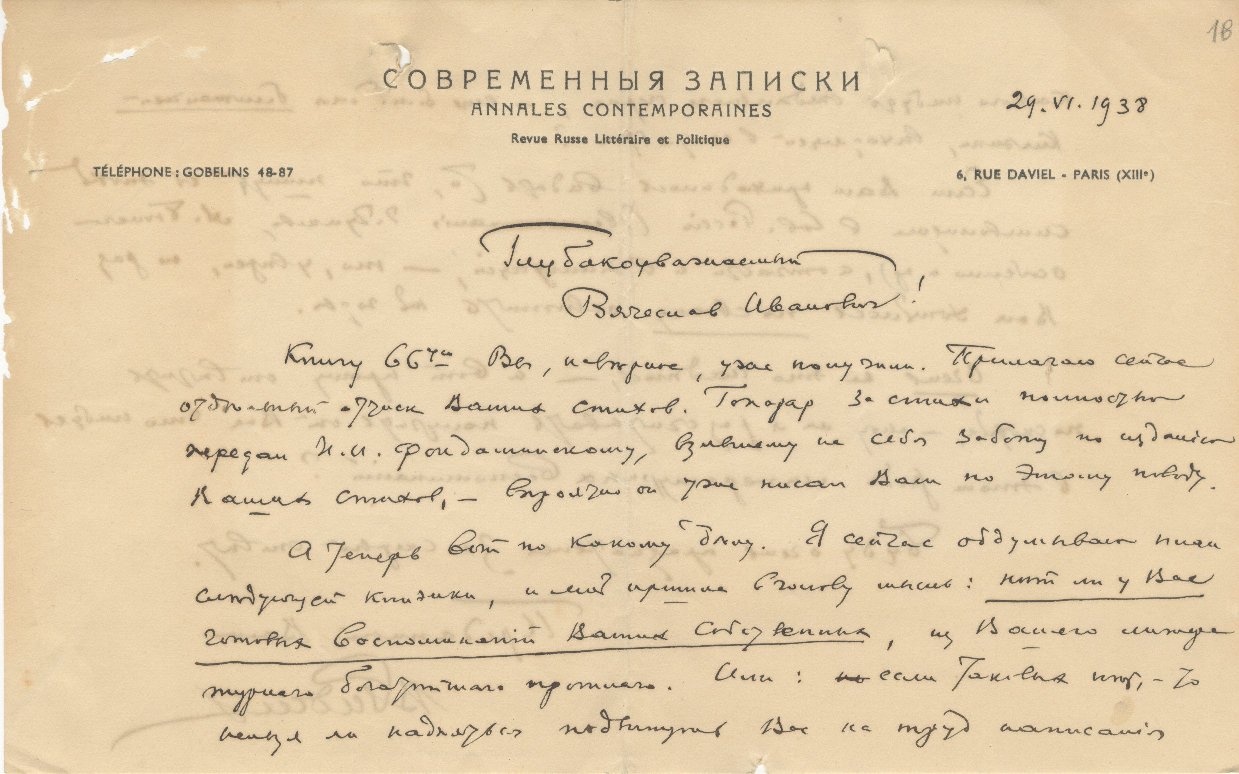 18
СОВРЕМЕННЫЯ ЗАПИСКИ
ANNALES CONTEMPORAINES
29.VI.1938
Revue Russe Littéraire et Politique
TÉLÉPHONE : GOBELINS 48-87
6, RUE DAVIEL - PARIS (XIIIe)
Глубокоуважаемый
Вячеслав Иванович!
Книгу 66ую Вы, наверное, уже получили. Прилагаю сейчас
отдѣльный оттиск Ваших стихов. Гонорар за стихи полностью
передан И. И. Фондаминскому, взявшему на себя заботу по изданію
Ваших стихов, – вѣроятно он уже писал Вам по этому поводу.
А теперь вот по какому дѣлу. Я сейчас обдумываю план
слѣдующей книжки, и мнѣ пришла в голову мысль: нѣт ли у Вас
готовых воспоминаній Ваших собственных, из Вашего литера
турнаго богатѣйшаго прошлаго. Или: если таковых нѣт, – то
нельзя ли надѣяться подвинуть Вас на труд написанія